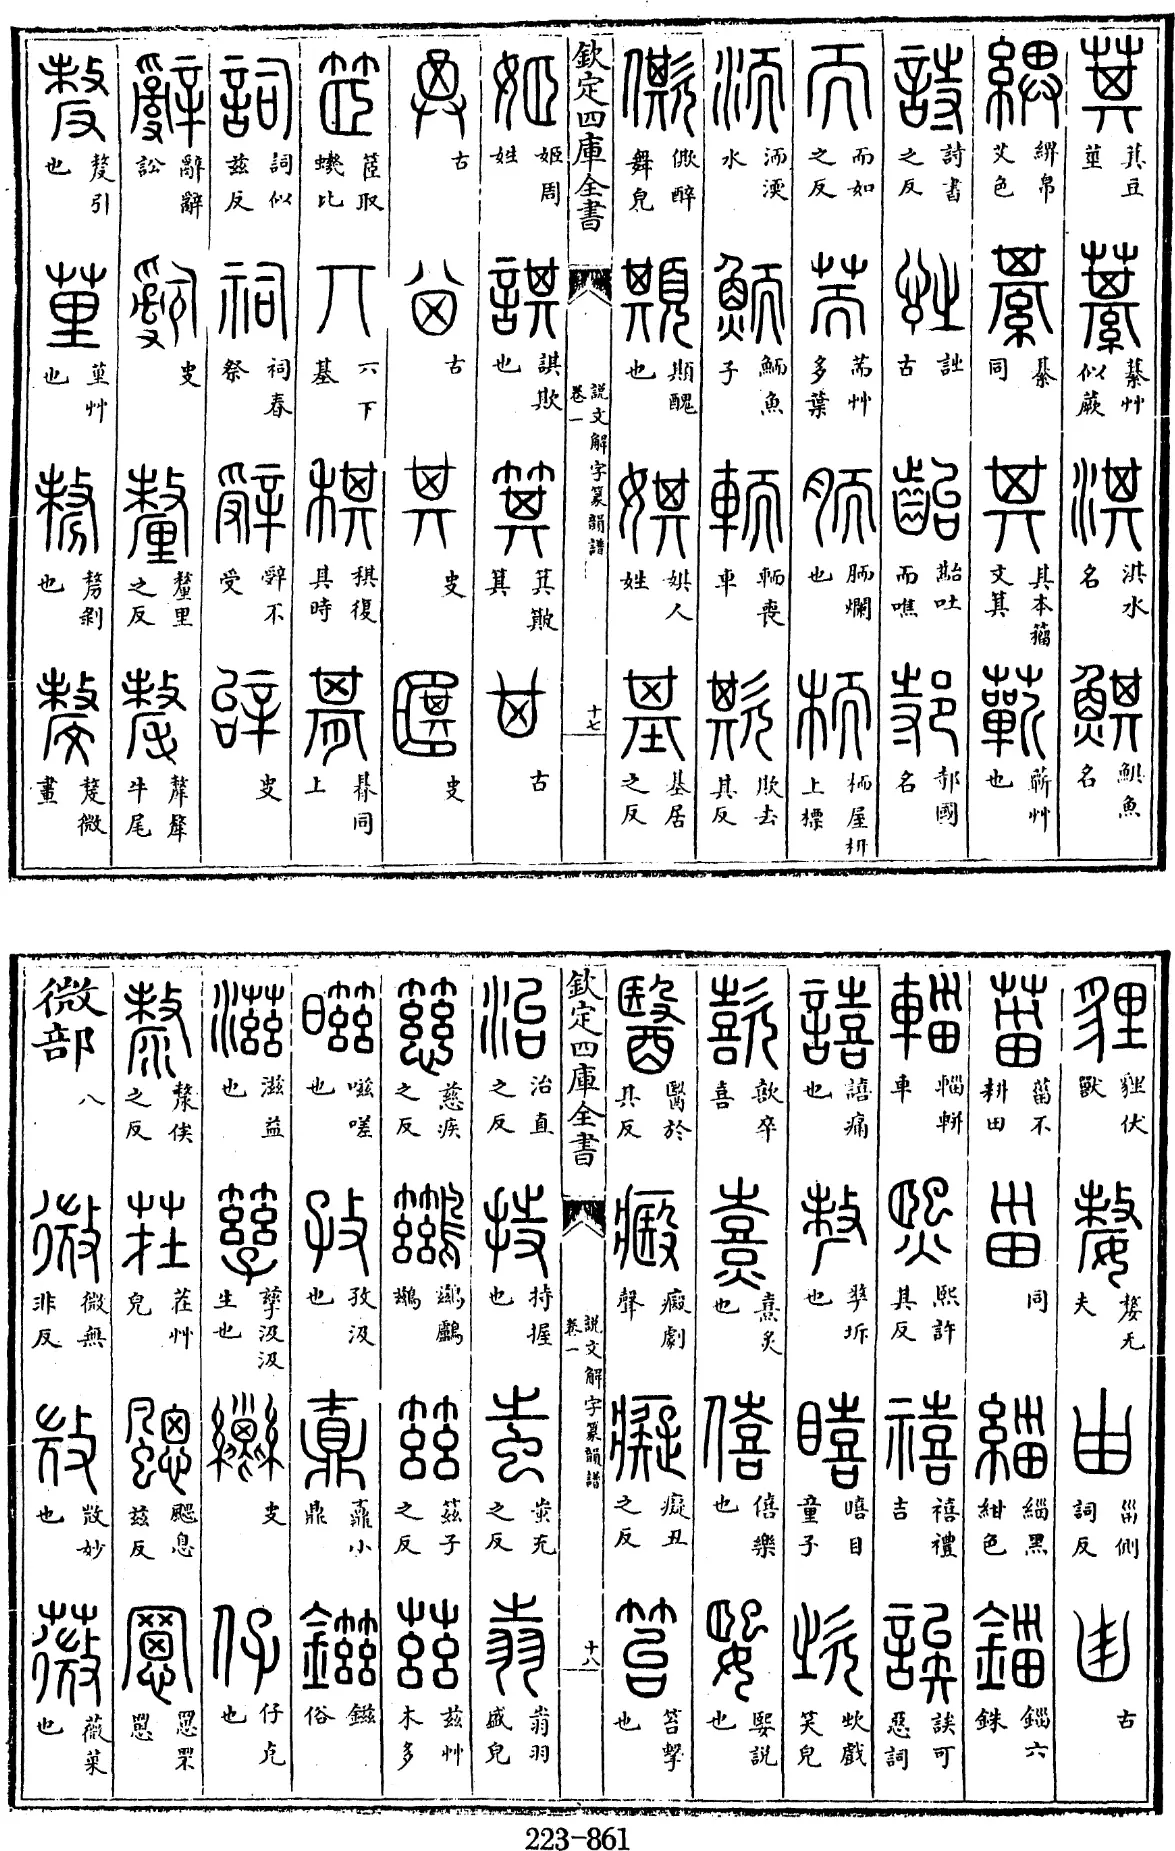 萁 萁豆莖 藄 綦艸似蕨 淇 淇水名 鯕 鯕魚名
綥 綥帛艾色 綦 綦同 其 其本籀文箕 蘄 蘄艸也
詩 詩書之反 訨 訨古 齝 齝吐而噍 邿 邿國名
而 而如之反 荋 荋艸多葉 胹 胹爛也 栭 栭屋枅上標
洏 洏渜水 鮞 鮞魚子 輀 輀喪車 欺 欺去其反
僛 僛醉舞皃 䫏 䫏醜也 娸 娸人姓 基 基居之反
欽定四庫全書 說文解字篆韻譜 卷一 十七
姬 姬周姓 諆 諆欺也 箕 箕簸箕 古
古 古 史 史
取蟣比 丌 丌下基 稘 稘復其時 朞 朞同上
詞 詞似茲反 祠 祠春祭 辤 辤不受 辝 史
辭 辭辭訟 史 釐 釐里之反 犛 犛犛牛尾
引也 堇 堇艸也 剺 剺剝也 微畫
貍 貍伏獸 嫠 嫠无夫 甾 甾側詞反 古
菑 菑不耕田 甾 同 緇 緇黑紺色 錙 錙六銖
輜 輜軿車 熙 熙許其反 禧 禧禮吉 誒 誒可惡詞
譆 譆痛也 坼也 瞦 瞦目童子 戲笑皃
歖 歖卒喜 熹 熹炙也 僖 僖樂也 媐 媐說也
醫 醫於其反 劇聲 癡 癡丑之反 笞 笞擊也
欽定四庫全書 說文解字篆韻譜 卷一 十八
治 治直之反 持 持握也 蚩 蚩充之反 羽盛皃
慈 慈疾之反 鷀 鷀鸕鷀 茲 茲子之反 茲 茲艸木多
嗞 嗞嗟也 孜 孜汲也 鼒 鼒小鼎 鎡 鎡俗
滋 滋益也 孳 孳汲汲生也 史 仔 仔克也
漦 漦俟之反 茬 茬艸皃 颸 颸息茲反 罳 罳罘罳
微部 八 微 微無非反 妙也 薇 薇菜也
223-861